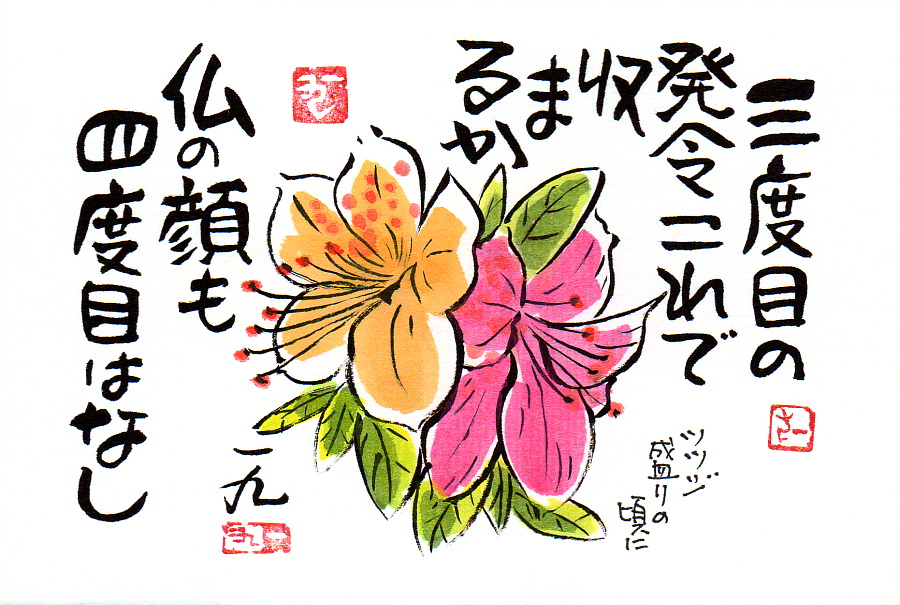 三度目の
発令これで
収
ま
るか
仏の顔も
四度目はなし
一九
ツツジ
盛りの
頃に